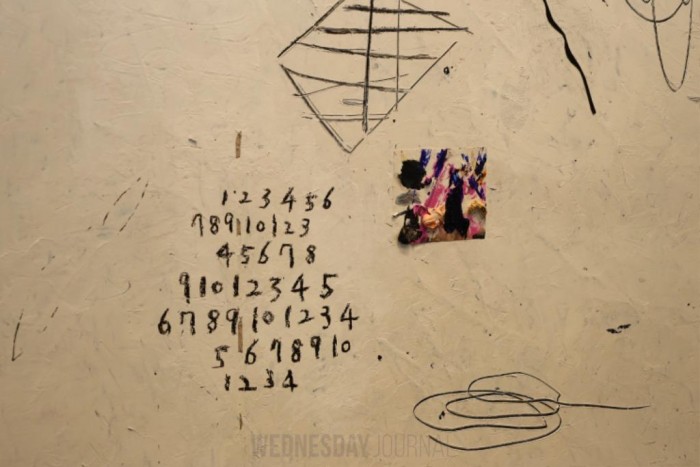 1 2 3 4 5 6
7 8 9 10 1 2 3
4 5 6 7 8
9 10 1 2 3 4 5
6 7 8 9 10 1 2 3 4
5 6 7 8 9 10
1 2 3 4
WEDNESDAY JOURNAL